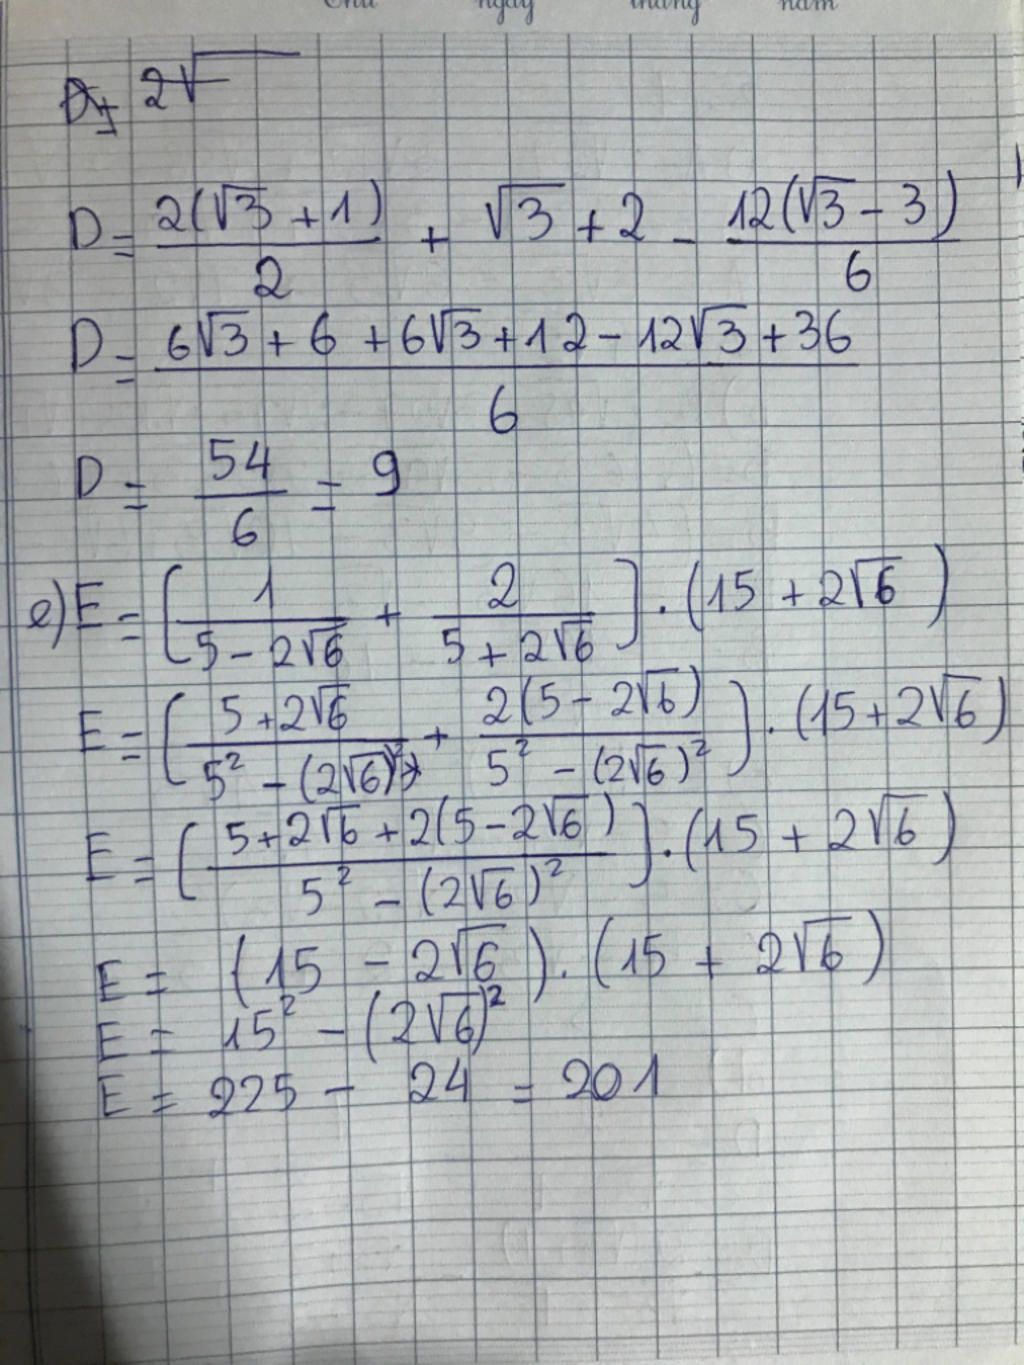 Thứ ngày tháng năm
2√
D = 2(√3 + 1)/2 + √3 + 2 - 12(√3 - 3)/6
D = (6√3 + 6 + 6√3 + 12 - 12√3 + 36)/6
D = 54/6 = 9
e) E = [1/(5 - 2√6) + 2/(5 + 2√6)] . (15 + 2√6)
E = [(5 + 2√6)/(5² - (2√6)²) + 2(5 - 2√6)/(5² - (2√6)²)] . (15 + 2√6)
E = [(5 + 2√6 + 2(5 - 2√6))/(5² - (2√6)²)] . (15 + 2√6)
E = (15 - 2√6) . (15 + 2√6)
E = 15² - (2√6)²
E = 225 - 24 = 201